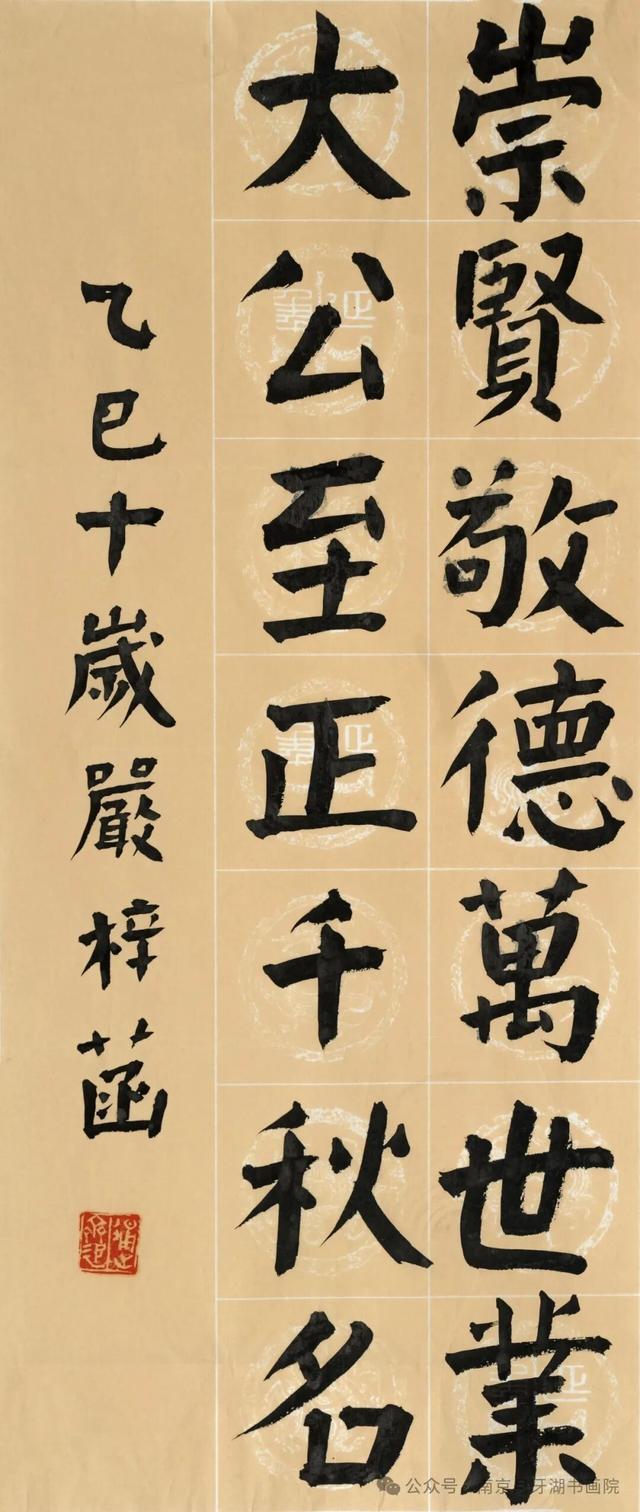 崇賢敬德萬世業
大公至正千秋名
乙巳十歲嚴梓菡
公众号 南京月牙湖书画院